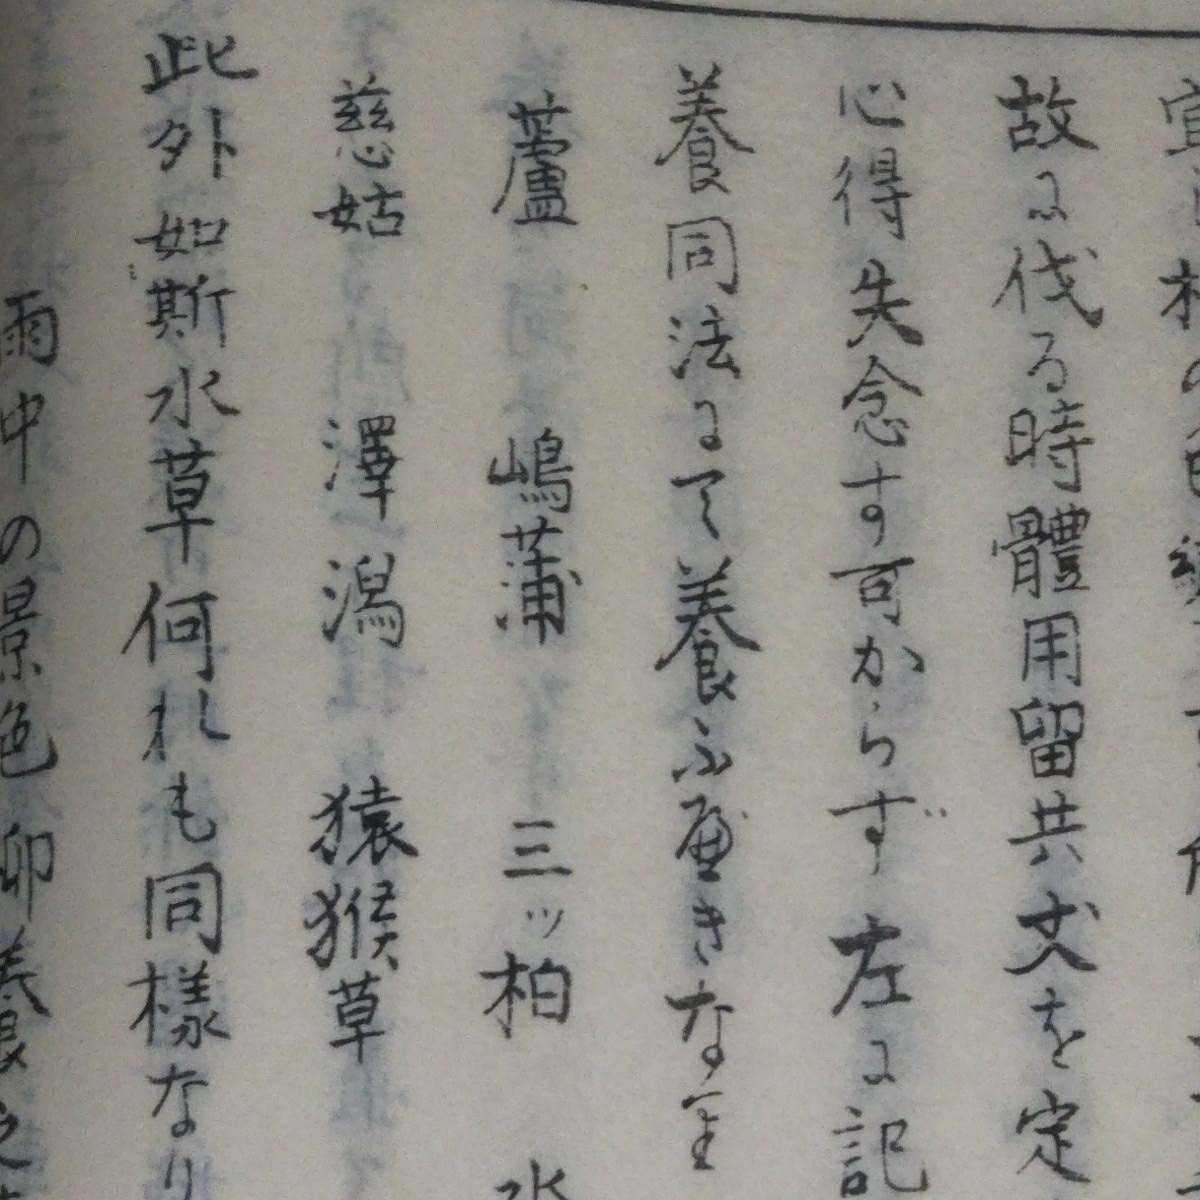 故に伐る時體用留共丈を定
心得失念す可からず左に記
養同法にて養ふ可きなり
蘆 嶋蒲 三ッ柏 水
慈姑 澤潟 猿猴草
此外如斯水草何れも同様なり
雨中の景色